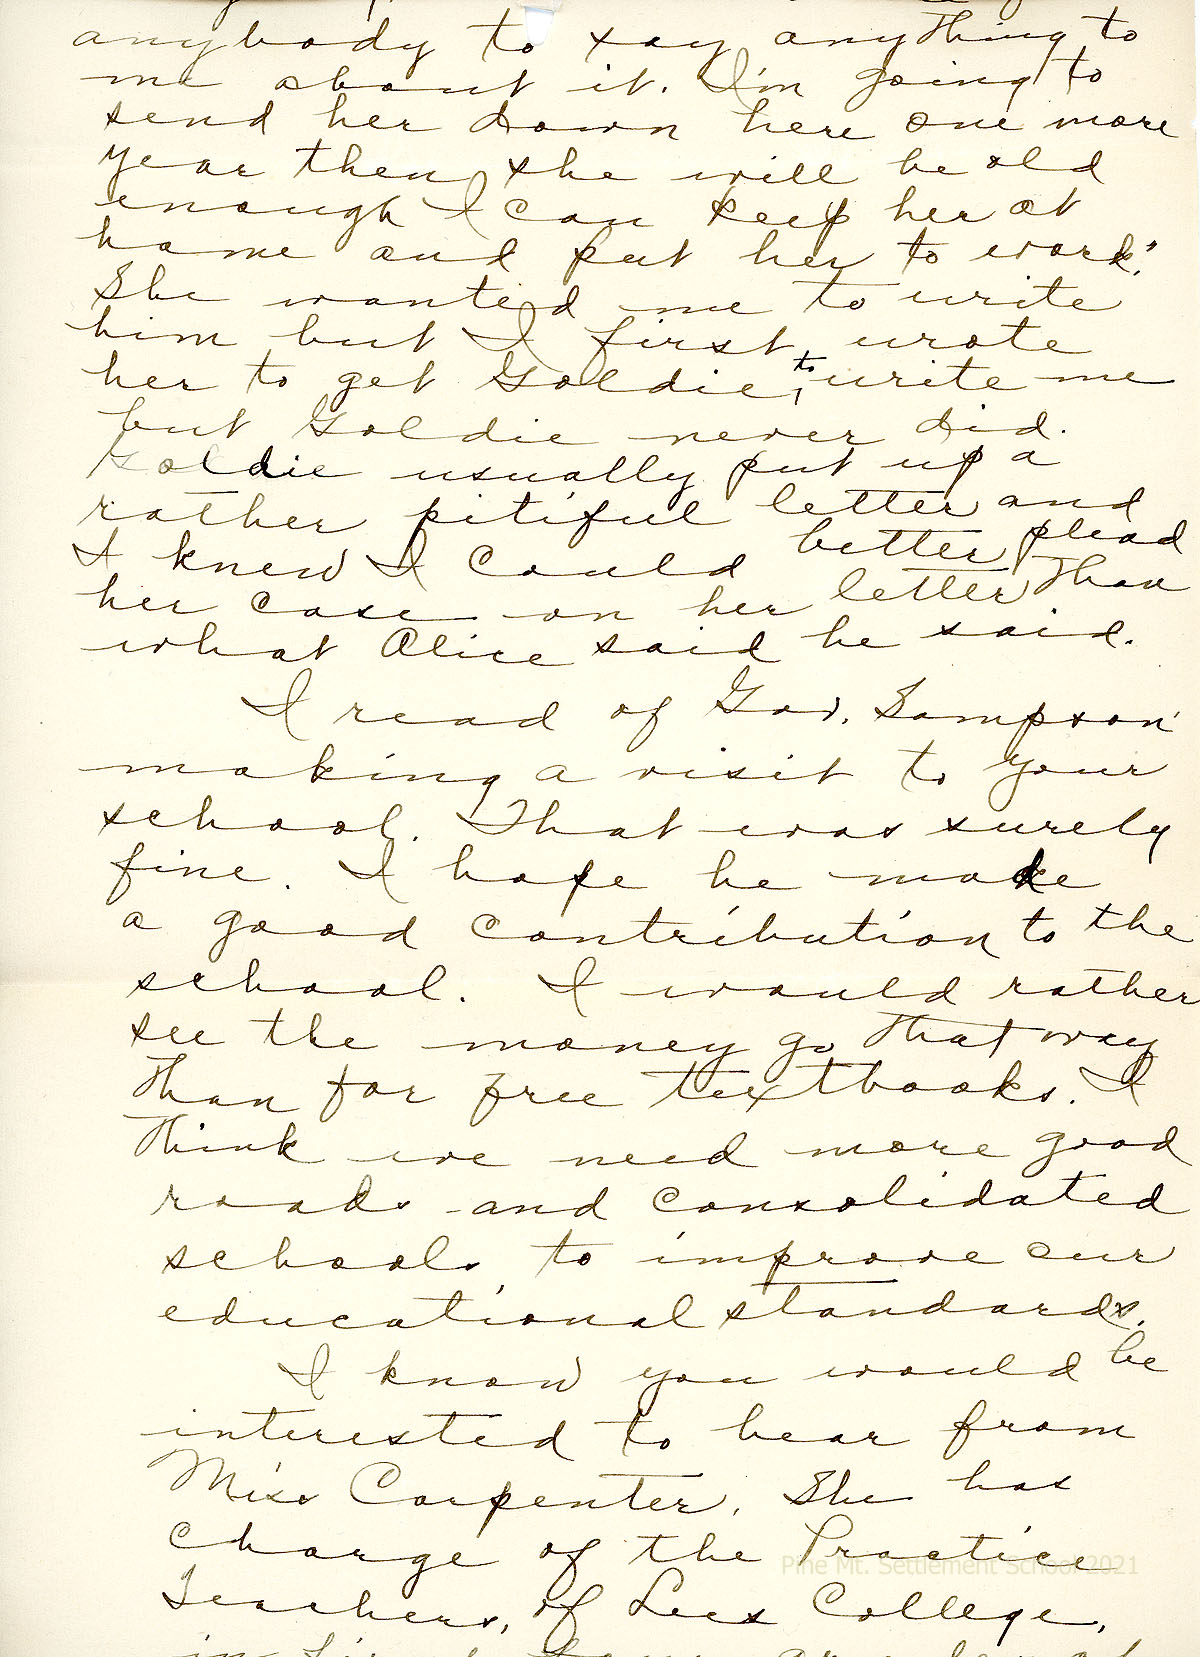 anybody to say anything to
me about it. I'm going to
send her down here one more
year then she will be old
enough I can keep her at
home and put her to work."
She wanted me to write
him but I first wrote
her to get Goldie to write me
but Goldie never did.
Goldie usually put up a
rather pitiful letter and
I knew I could better plead
her case on her letter than
what Alice said he said.
I read of Gov. Sampson
making a visit to your
school. That was surely
fine. I hope he made
a good contribution to the
school. I would rather
see the money go that way
than for free textbooks. I
think we need more good
roads and consolidated
schools, to improve our
educational standards.
I know you would be
interested to hear from
Miss Carpenter. She has
charge of the Practice
Pine Mt. Settlement School 2021
Teachers, of Lees College,